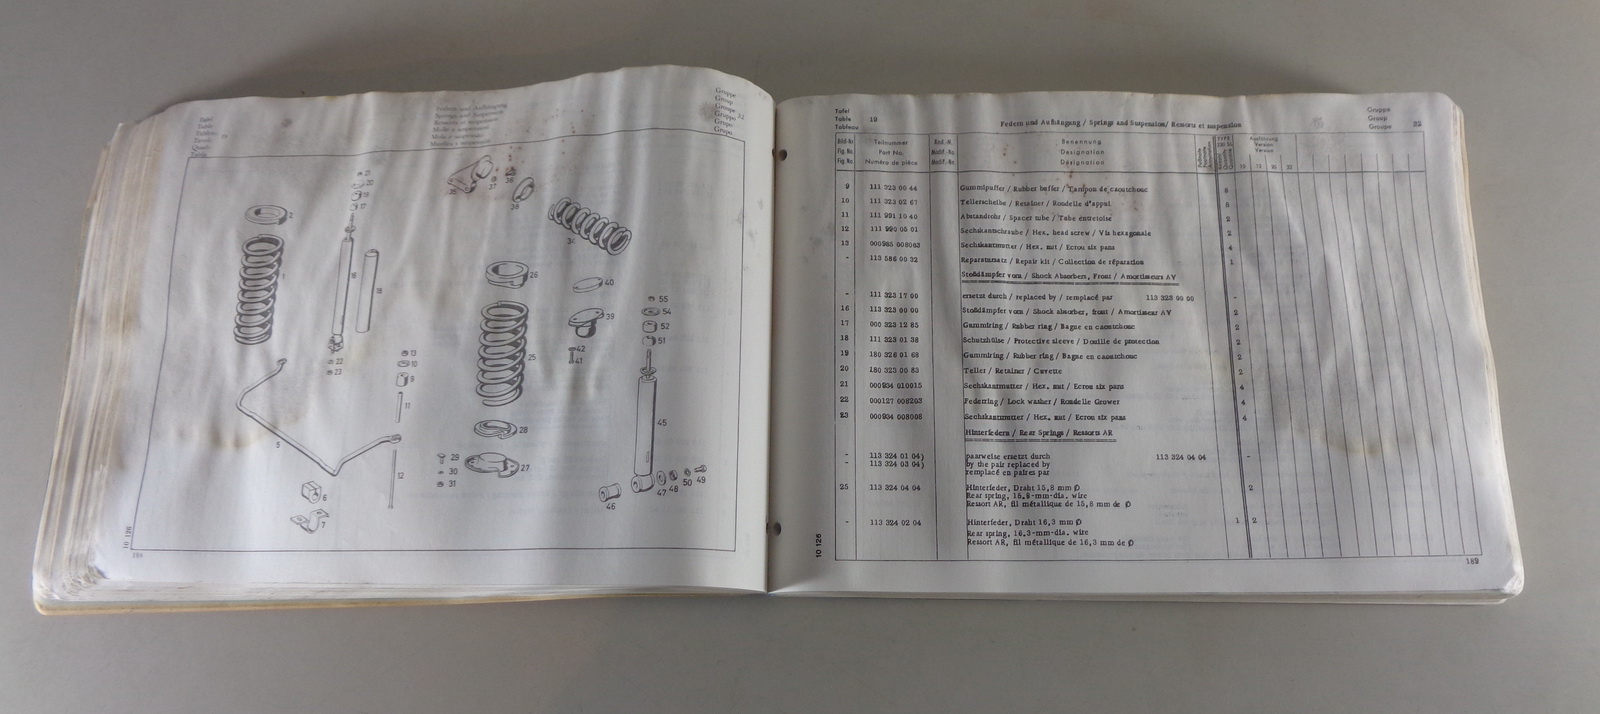 Tafel
Table
Tableau 19
Federn und Aufhängung
Springs and Suspension
Ressorts et suspension
Gruppe
Group
Groupe 32
21
20
19
17
2
1
16
18
22
23
13
10
9
11
12
5
6
7
35
37
36
38
34
26
25
28
27
29
30
31
40
39
42
41
55
54
52
51
45
46
47
48
50
49
10 126
188
Tafel
Table 19
Tableau
Federn und Aufhängung / Springs and Suspension / Ressorts et suspension
Gruppe
Group
Groupe 32
Bild-Nr Teilnummer Änd.-N. Benennung
Fig. No. Part No. Modif.-No. Designation
Fig. No. Numéro de pièce Modif.-No. Désignation
Ausführung
Version
Version
9 111 323 00 44 Gummipuffer / Rubber buffer / Tampon de caoutchouc 8
10 111 323 02 67 Tellerscheibe / Retainer / Rondelle d'appui 8
11 111 991 10 40 Abstandrohr / Spacer tube / Tube entretoise 2
12 111 990 05 01 Sechskantschraube / Hex. head screw / Vis hexagonale 2
13 000985 008063 Sechskantmutter / Hex. nut / Ecrou six pans 4
- 113 586 00 32 Reparatursatz / Repair kit / Collection de réparation 1
Stoßdämpfer vorn / Shock Absorbers, Front / Amortisseurs AV
- 111 323 17 00 ersetzt durch / replaced by / remplacé par 113 323 00 00 -
16 113 323 00 00 Stoßdämpfer vorn / Shock absorber, front / Amortisseur AV 2
17 000 323 12 85 Gummiring / Rubber ring / Bague en caoutchouc 2
18 111 323 01 36 Schutzhülse / Protective sleeve / Douille de protection 2
19 180 326 01 68 Gummiring / Rubber ring / Bague en caoutchouc 2
20 180 323 00 83 Teller / Retainer / Cuvette 2
21 000934 010015 Sechskantmutter / Hex. nut / Ecrou six pans 4
22 000127 008203 Federring / Lock washer / Rondelle Grower 4
23 000934 008006 Sechskantmutter / Hex. nut / Ecrou six pans 4
Hinterfedern / Rear Springs / Ressorts AR
- 113 324 01 04) paarweise ersetzt durch 113 324 04 04 -
- 113 324 03 04) by the pair replaced by
remplacé en paires par
25 113 324 04 04 Hinterfeder, Draht 15,8 mm Ø 2
Rear spring, 15,8-mm-dia. wire
Ressort AR, fil métallique de 15,8 mm de Ø
- 113 324 02 04 Hinterfeder, Draht 16,3 mm Ø 1 2
Rear spring, 16,3-mm-dia. wire
Ressort AR, fil métallique de 16,3 mm de Ø
10 126
189